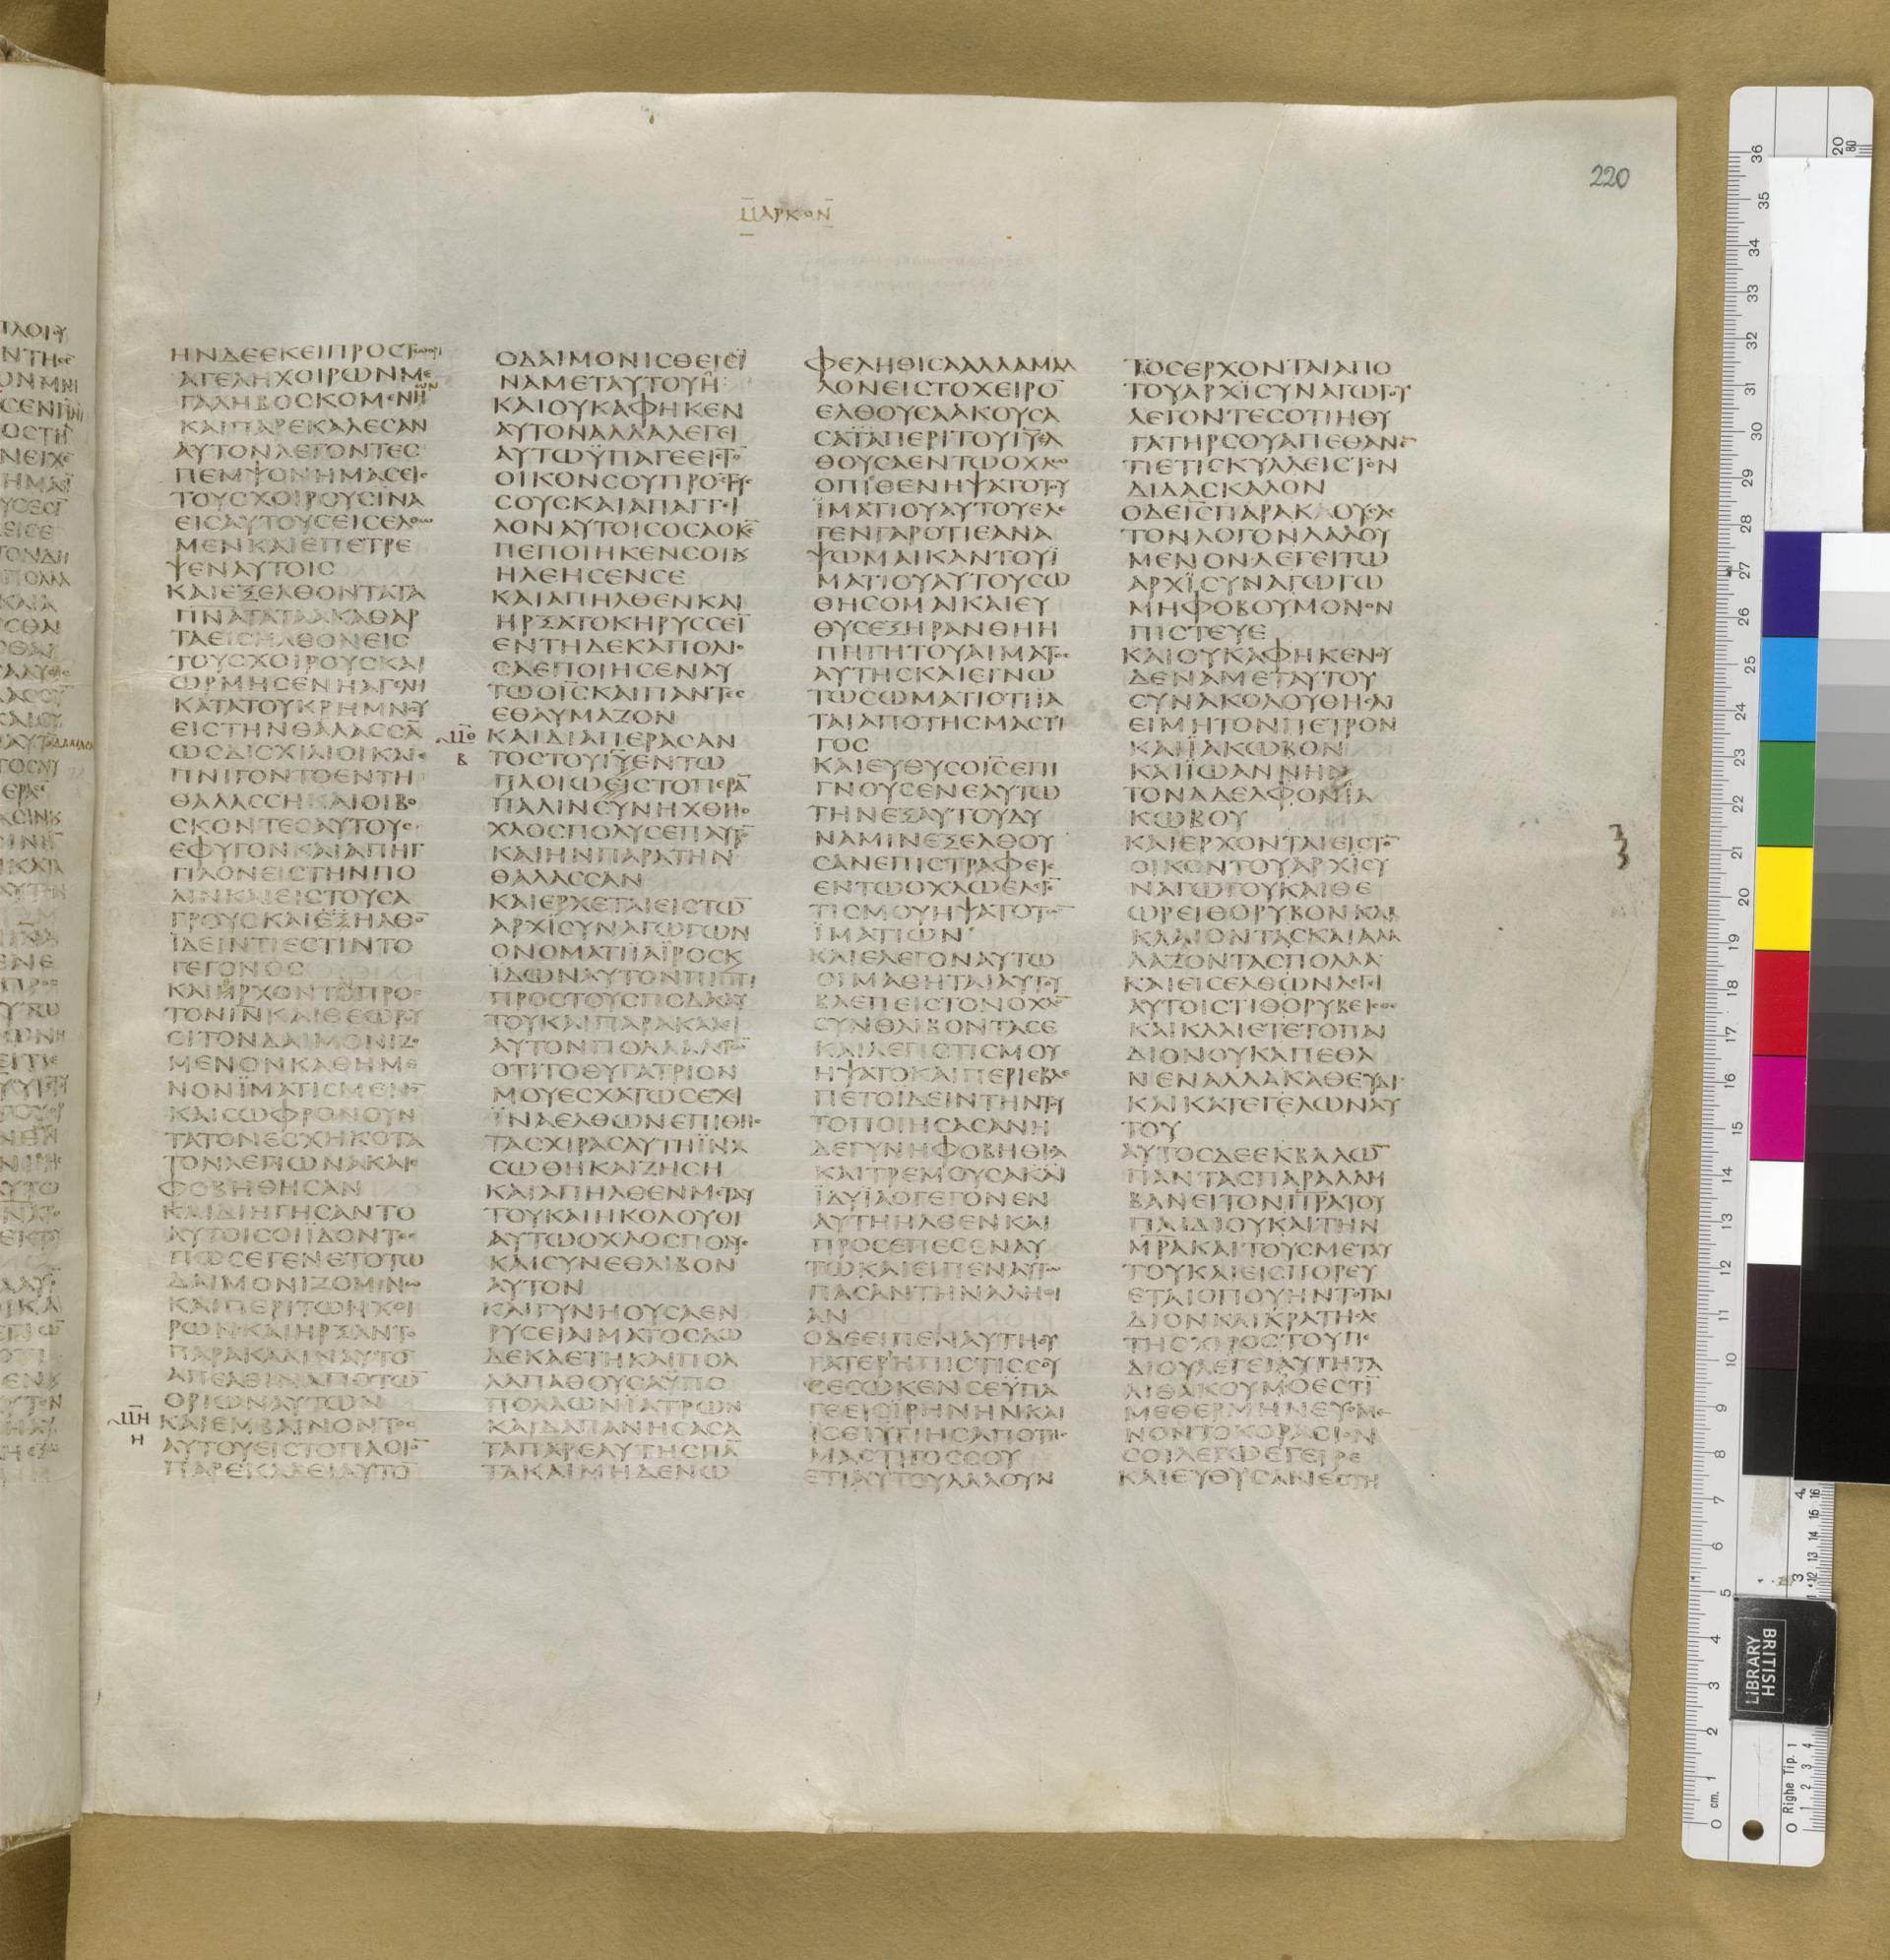 220
ΜΑΡΚΟΝ
ΗΝΔΕΕΚΕΙΠΡΟΣΤΩΟΡΙ
ΑΓΕΛΗΧΟΙΡΩΝΜΕ
ΓΑΛΗΒΟΣΚΟΜΕΝΗ
ΚΑΙΠΑΡΕΚΑΛΕΣΑΝ
ΑΥΤΟΝΛΕΓΟΝΤΕΣ
ΠΕΜΨΟΝΗΜΑΣΕΙΣ
ΤΟΥΣΧΟΙΡΟΥΣΪΝΑ
ΕΙΣΑΥΤΟΥΣΕΙΣΕΛΘΩ
ΜΕΝΚΑΙΕΠΕΤΡΕ
ΨΕΝΑΥΤΟΙΣ
ΚΑΙΕΞΕΛΘΟΝΤΑΤΑ
ΠΝΑΤΑΤΑΑΚΑΘΑΡ
ΤΑΕΙΣΗΛΘΟΝΕΙΣ
ΤΟΥΣΧΟΙΡΟΥΣΚΑΙ
ΩΡΜΗΣΕΝΗΑΓΕΛΗ
ΚΑΤΑΤΟΥΚΡΗΜΝΟΥ
ΕΙΣΤΗΝΘΑΛΑΣΣΑ̅
ΩΣΔΙΣΧΙΛΙΟΙΚΑΙΕ
ΠΝΙΓΟΝΤΟΕΝΤΗ
ΘΑΛΑΣΣΗΚΑΙΟΙΒΟ
ΣΚΟΝΤΕΣΑΥΤΟΥΣ
ΕΦΥΓΟΝΚΑΙΑΠΗΓ
ΓΙΛΟΝΕΙΣΤΗΝΠΟ
ΛΙΝΚΑΙΕΙΣΤΟΥΣΑ
ΓΡΟΥΣΚΑΙΕΞΗΛΘΟ̅
ΪΔΕΙΝΤΙΕΣΤΙΝΤΟ
ΓΕΓΟΝΟΣ
ΚΑΙΗΡΧΟΝΤΟΠΡΟΣ
ΤΟΝΙ̅Ν̅ΚΑΙΘΕΩΡΟΥ
ΣΙΤΟΝΔΑΙΜΟΝΙΖΟ
ΜΕΝΟΝΚΑΘΗΜΕ
ΝΟΝΪΜΑΤΙΣΜΕΝΟ̅
ΚΑΙΣΩΦΡΟΝΟΥΝ
ΤΑΤΟΝΕΣΧΗΚΟΤΑ
ΤΟΝΛΕΓΙΩΝΑΚΑΙΕ
ΦΟΒΗΘΗΣΑΝ
ΚΑΙΔΙΗΓΗΣΑΝΤΟ
ΑΥΤΟΙΣΟΙΪΔΟΝΤΕΣ
ΠΩΣΕΓΕΝΕΤΟΤΩ
ΔΑΙΜΟΝΙΖΟΜΕΝΩ
ΚΑΙΠΕΡΙΤΩΝΧΟΙ
ΡΩΝΚΑΙΗΡΞΑΝΤΟ
ΠΑΡΑΚΑΛΙΝΑΥΤΟ̅
ΑΠΕΛΘΙΝΑΠΟΤΩ̅
ΟΡΙΩΝΑΥΤΩΝ
ΜΗ
Η
ΚΑΙΕΜΒΑΙΝΟΝΤΟΣ
ΑΥΤΟΥΕΙΣΤΟΠΛΟΙΟ̅
ΠΑΡΕΚΑΛΕΙΑΥΤΟ̅
ΟΔΑΙΜΟΝΙΣΘΕΙΣΪ
ΝΑΜΕΤΑΥΤΟΥΗ
ΚΑΙΟΥΚΑΦΗΚΕΝ
ΑΥΤΟΝΑΛΛΑΛΕΓΕΙ
ΑΥΤΩΫΠΑΓΕΕΙΣΤΟ̅
ΟΙΚΟΝΣΟΥΠΡΟΣΤΟΥΣ
ΣΟΥΣΚΑΙΑΠΑΓΓΙ
ΛΟΝΑΥΤΟΙΣΟΣΑΟΚ̅Σ̅
ΠΕΠΟΙΗΚΕΝΣΟΙΚϗ
ΗΛΕΗΣΕΝΣΕ
ΚΑΙΑΠΗΛΘΕΝΚΑΙ
ΗΡΞΑΤΟΚΗΡΥΣΣΕΙ̅
ΕΝΤΗΔΕΚΑΠΟΛΕΙ
ΣΑΕΠΟΙΗΣΕΝΑΥ
ΤΩΟΙ̅Σ̅ΚΑΙΠΑΝΤΕΣ
ΕΘΑΥΜΑΖΟΝ
ΜΘ
Β
ΚΑΙΔΙΑΠΕΡΑΣΑΝ
ΤΟΣΤΟΥΙ̅Υ̅ΕΝΤΩ
ΠΛΟΙΩΕΙΣΤΟΠΕΡΑ̅
ΠΑΛΙΝΣΥΝΗΧΘΗΟ
ΧΛΟΣΠΟΛΥΣΕΠΑΥΤΟ̅
ΚΑΙΗΝΠΑΡΑΤΗΝ
ΘΑΛΑΣΣΑΝ
ΚΑΙΕΡΧΕΤΑΙΕΙΣΤΩ̅
ΑΡΧΪΣΥΝΑΓΩΓΩΝ
ΟΝΟΜΑΤΙΪΑΪΡΟΣϗ
ΪΔΩΝΑΥΤΟΝΠΙΠΤΙ
ΠΡΟΣΤΟΥΣΠΟΔΑΣΑΥ
ΤΟΥΚΑΙΠΑΡΑΚΑΛΕΙ
ΑΥΤΟΝΠΟΛΛΑΛΕΓΩ̅
ΟΤΙΤΟΘΥΓΑΤΡΙΟΝ
ΜΟΥΕΣΧΑΤΩΣΕΧΙ
ΪΝΑΕΛΘΩΝΕΠΙΘΗΣ
ΤΑΣΧΙΡΑΣΑΥΤΗΪΝΑ
ΣΩΘΗΚΑΙΖΗΣΗ
ΚΑΙΑΠΗΛΘΕΝΜΕΤΑΥ
ΤΟΥΚΑΙΗΚΟΛΟΥΘΙ
ΑΥΤΩΟΧΛΟΣΠΟΛΥΣ
ΚΑΙΣΥΝΕΘΛΙΒΟΝ
ΑΥΤΟΝ
ΚΑΙΓΥΝΗΟΥΣΑΕΝ
ΡΥΣΕΙΑΙΜΑΤΟΣΔΩ
ΔΕΚΑΕΤΗΚΑΙΠΟΛ
ΛΑΠΑΘΟΥΣΑΫΠΟ
ΠΟΛΛΩΝΪΑΤΡΩΝ
ΚΑΙΔΑΠΑΝΗΣΑΣΑ
ΤΑΠΑΡΕΑΥΤΗΣΠΑ̅
ΤΑΚΑΙΜΗΔΕΝΩ
ΦΕΛΗΘΙΣΑΑΛΛΑΜΑΛ
ΛΟΝΕΙΣΤΟΧΕΙΡΟ̅
ΕΛΘΟΥΣΑΑΚΟΥΣΑ
ΣΑΤΑΠΕΡΙΤΟΥΙ̅Υ̅ΕΛ
ΘΟΥΣΑΕΝΤΩΟΧΛΩ
ΟΠΙΣΘΕΝΗΨΑΤΟΤΟΥ
ΪΜΑΤΙΟΥΑΥΤΟΥΕΛΕ
ΓΕΝΓΑΡΟΤΙΕΑΝΑ
ΨΩΜΑΙΚΑΝΤΟΥΪ
ΜΑΤΙΟΥΑΥΤΟΥΣΩ
ΘΗΣΟΜΑΙΚΑΙΕΥ
ΘΥΣΕΞΗΡΑΝΘΗΗ
ΠΗΓΗΤΟΥΑΙΜΑΤΟΣ
ΑΥΤΗΣΚΑΙΕΓΝΩ
ΤΩΣΩΜΑΤΙΟΤΙΪΑ
ΤΑΙΑΠΟΤΗΣΜΑΣΤΙ
ΓΟΣ
ΚΑΙΕΥΘΥΣΟΙ̅Σ̅ΕΠΙ
ΓΝΟΥΣΕΝΕΑΥΤΩ
ΤΗΝΕΞΑΥΤΟΥΔΥ
ΝΑΜΙΝΕΞΕΛΘΟΥ
ΣΑΝΕΠΙΣΤΡΑΦΕΙΣ
ΕΝΤΩΟΧΛΩΕΛΕΓΕ̅
ΤΙΣΜΟΥΗΨΑΤΟΤΩ̅
ΪΜΑΤΙΩΝ
ΚΑΙΕΛΕΓΟΝΑΥΤΩ
ΟΙΜΑΘΗΤΑΙΑΥΤΟΥ
ΒΛΕΠΕΙΣΤΟΝΟΧΛΟ̅
ΣΥΝΘΛΙΒΟΝΤΑΣΕ
ΚΑΙΛΕΓΙΣΤΙΣΜΟΥ
ΗΨΑΤΟΚΑΙΠΕΡΙΕΒΛΕ
ΠΕΤΟΪΔΕΙΝΤΗΝΤΟΥ
ΤΟΠΟΙΗΣΑΣΑΝΗ
ΔΕΓΥΝΗΦΟΒΗΘΙΣΑ
ΚΑΙΤΡΕΜΟΥΣΑΚΑΙ
ΪΔΥΪΑΟΓΕΓΟΝΕΝ
ΑΥΤΗΗΛΘΕΝΚΑΙ
ΠΡΟΣΕΠΕΣΕΝΑΥ
ΤΩΚΑΙΕΙΠΕΝΑΥΤΩ
ΠΑΣΑΝΤΗΝΑΛΗΘΙ
ΑΝ
ΟΔΕΕΙΠΕΝΑΥΤΗΘΥ
ΓΑΤΕΡΗΠΙΣΤΙΣΣΟΥ
ΣΕΣΩΚΕΝΣΕΫΠΑ
ΓΕΕΙΣΪΡΗΝΗΝΚΑΙ
ΪΣΘΙΥΓΙΗΣΑΠΟΤΗΣ
ΜΑΣΤΙΓΟΣΣΟΥ
ΕΤΙΑΥΤΟΥΛΑΛΟΥΝ
ΤΟΣΕΡΧΟΝΤΑΙΑΠΟ
ΤΟΥΑΡΧΪΣΥΝΑΓΩΓΟΥ
ΛΕΓΟΝΤΕΣΟΤΙΗΘΥ
ΓΑΤΗΡΣΟΥΑΠΕΘΑΝΕ̅
ΤΙΕΤΙΣΚΥΛΛΕΙΣΤΟΝ
ΔΙΔΑΣΚΑΛΟΝ
ΟΔΕΙ̅Σ̅ΠΑΡΑΚΟΥΣΑΣ
ΤΟΝΛΟΓΟΝΛΑΛΟΥ
ΜΕΝΟΝΛΕΓΕΙΤΩ
ΑΡΧΪΣΥΝΑΓΩΓΩ
ΜΗΦΟΒΟΥΜΟΝΟΝ
ΠΙΣΤΕΥΕ
ΚΑΙΟΥΚΑΦΗΚΕΝΟΥ
ΔΕΝΑΜΕΤΑΥΤΟΥ
ΣΥΝΑΚΟΛΟΥΘΗΣΑΙ
ΕΙΜΗΤΟΝΠΕΤΡΟΝ
ΚΑΙΪΑΚΩΒΟΝ
ΚΑΙΪΩΑΝΝΗΝ
ΤΟΝΑΔΕΛΦΟΝΪΑ
ΚΩΒΟΥ
ΚΑΙΕΡΧΟΝΤΑΙΕΙΣΤΟ̅
ΟΙΚΟΝΤΟΥΑΡΧΪΣΥ
ΝΑΓΩΓΟΥΚΑΙΘΕ
ΩΡΕΙΘΟΡΥΒΟΝΚΑΙ
ΚΛΑΙΟΝΤΑΣΚΑΙΑΛΑ
ΛΑΖΟΝΤΑΣΠΟΛΛΑ
ΚΑΙΕΙΣΕΛΘΩΝΛΕΓΙ
ΑΥΤΟΙΣΤΙΘΟΡΥΒΕΙΣΘΕ
ΚΑΙΚΛΑΙΕΤΕΤΟΠΑΙ
ΔΙΟΝΟΥΚΑΠΕΘΑ
ΝΕΝΑΛΛΑΚΑΘΕΥΔΙ
ΚΑΙΚΑΤΕΓΕΛΩΝΑΥ
ΤΟΥ
ΑΥΤΟΣΔΕΕΚΒΑΛΩ̅
ΠΑΝΤΑΣΠΑΡΑΛΑΜ
ΒΑΝΕΙΤΟΝΠ̅Ρ̅Α̅ΤΟΥ
ΠΑΙΔΙΟΥΚΑΙΤΗΝ
Μ̅Ρ̅Α̅ΚΑΙΤΟΥΣΜΕΤΑΥ
ΤΟΥΚΑΙΕΙΣΠΟΡΕΥ
ΕΤΑΙΟΠΟΥΗΝΤΟΠΑΙ
ΔΙΟΝΚΑΙΚΡΑΤΗΣΑΣ
ΤΗΣΧΙΡΟΣΤΟΥΠΕ
ΔΙΟΥΛΕΓΕΙΑΥΤΗΤΑ
ΛΙΘΑΚΟΥΜΟΕΣΤΙ̅
ΜΕΘΕΡΜΗΝΕΥΟΜΕ
ΝΟΝΤΟΚΟΡΑΣΙΟΝ
ΣΟΙΛΕΓΩΕΓΕΙΡΕ
ΚΑΙΕΥΘΥΣΑΝΕΣΤΗ
BRITISH
LIBRARY
0 Righe Tip. 1